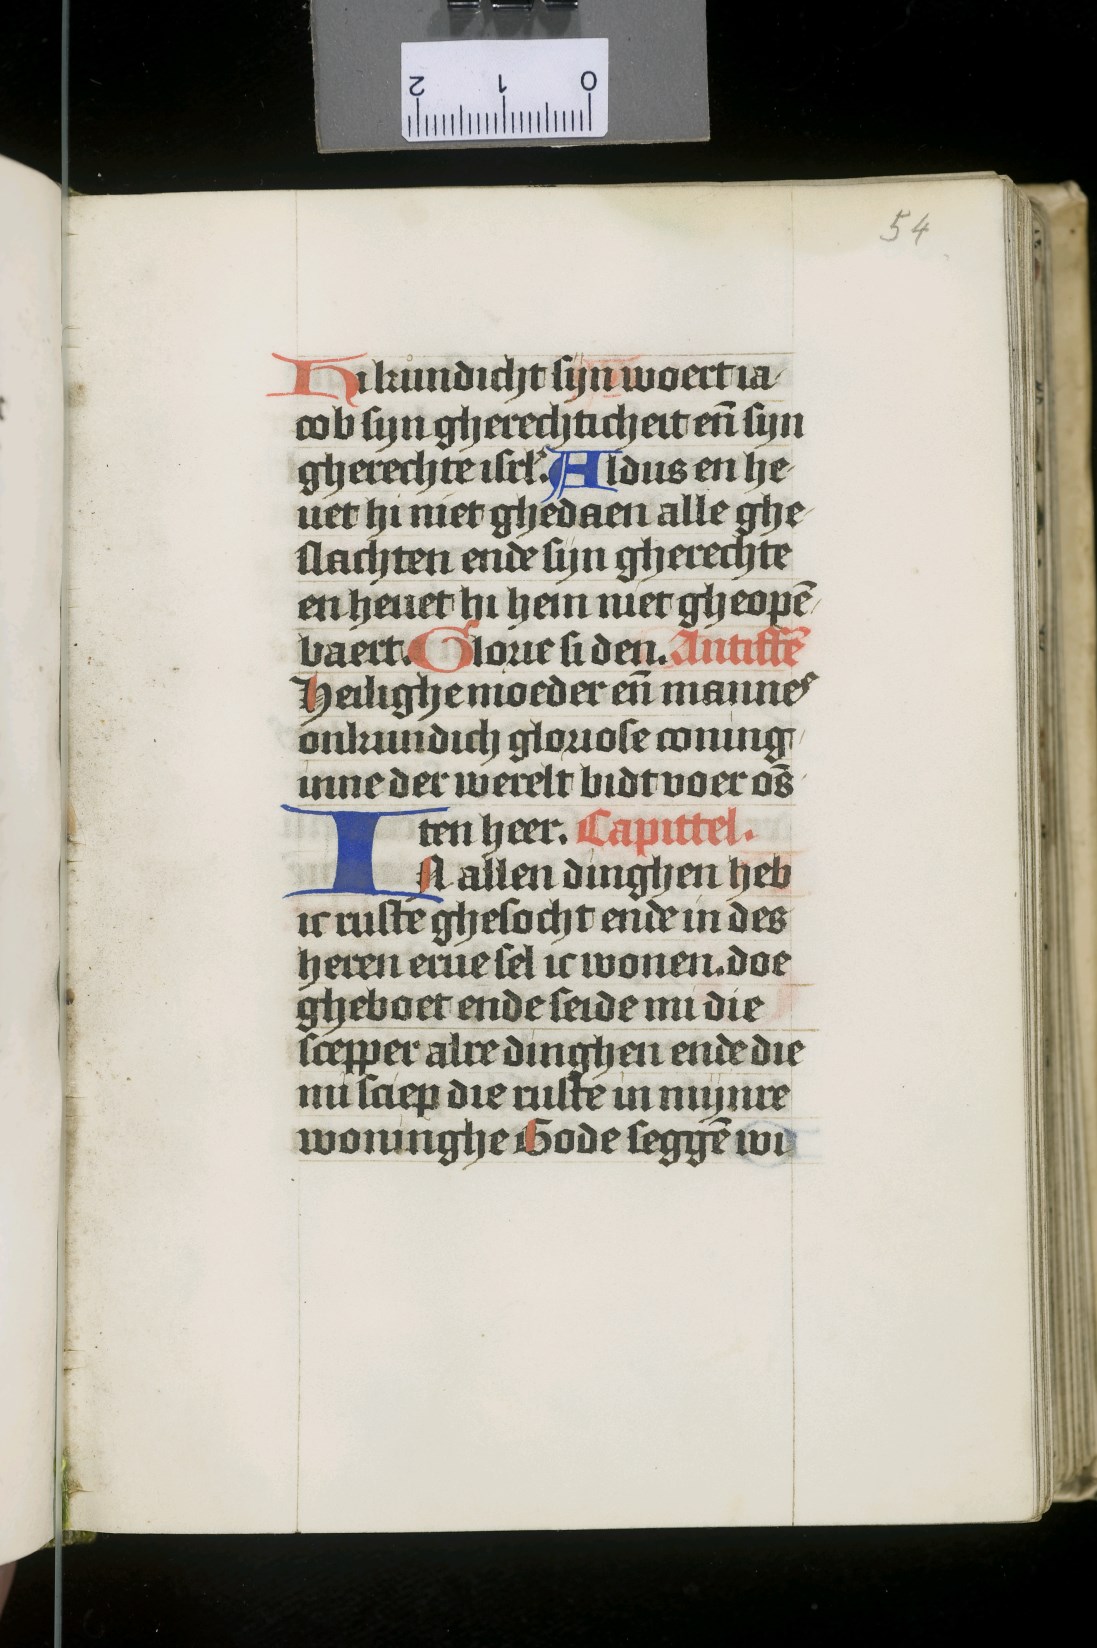 2 1 0
54
Hi kundicht sijn woert ia
cob sijn gherechticheit en̄ sijn
gherechte isrl'. Aldus en he
uet hi niet ghedaen alle ghe
slachten ende sijn gherechte
en heuet hi hem niet gheopē
baert. Glorie si den. Antiffē
Heilighe moeder en̄ mannes
onkundich gloriose coning
inne der werelt bidt voer os̄
ten heer. Capittel.
IN allen dinghen heb
ic ruste ghesocht ende in des
heren erue sel ic wonen. doe
gheboet ende seide mi die
scepper alre dinghen ende die
mi sciep die ruste in mijnre
woninghe Gode seggē wi